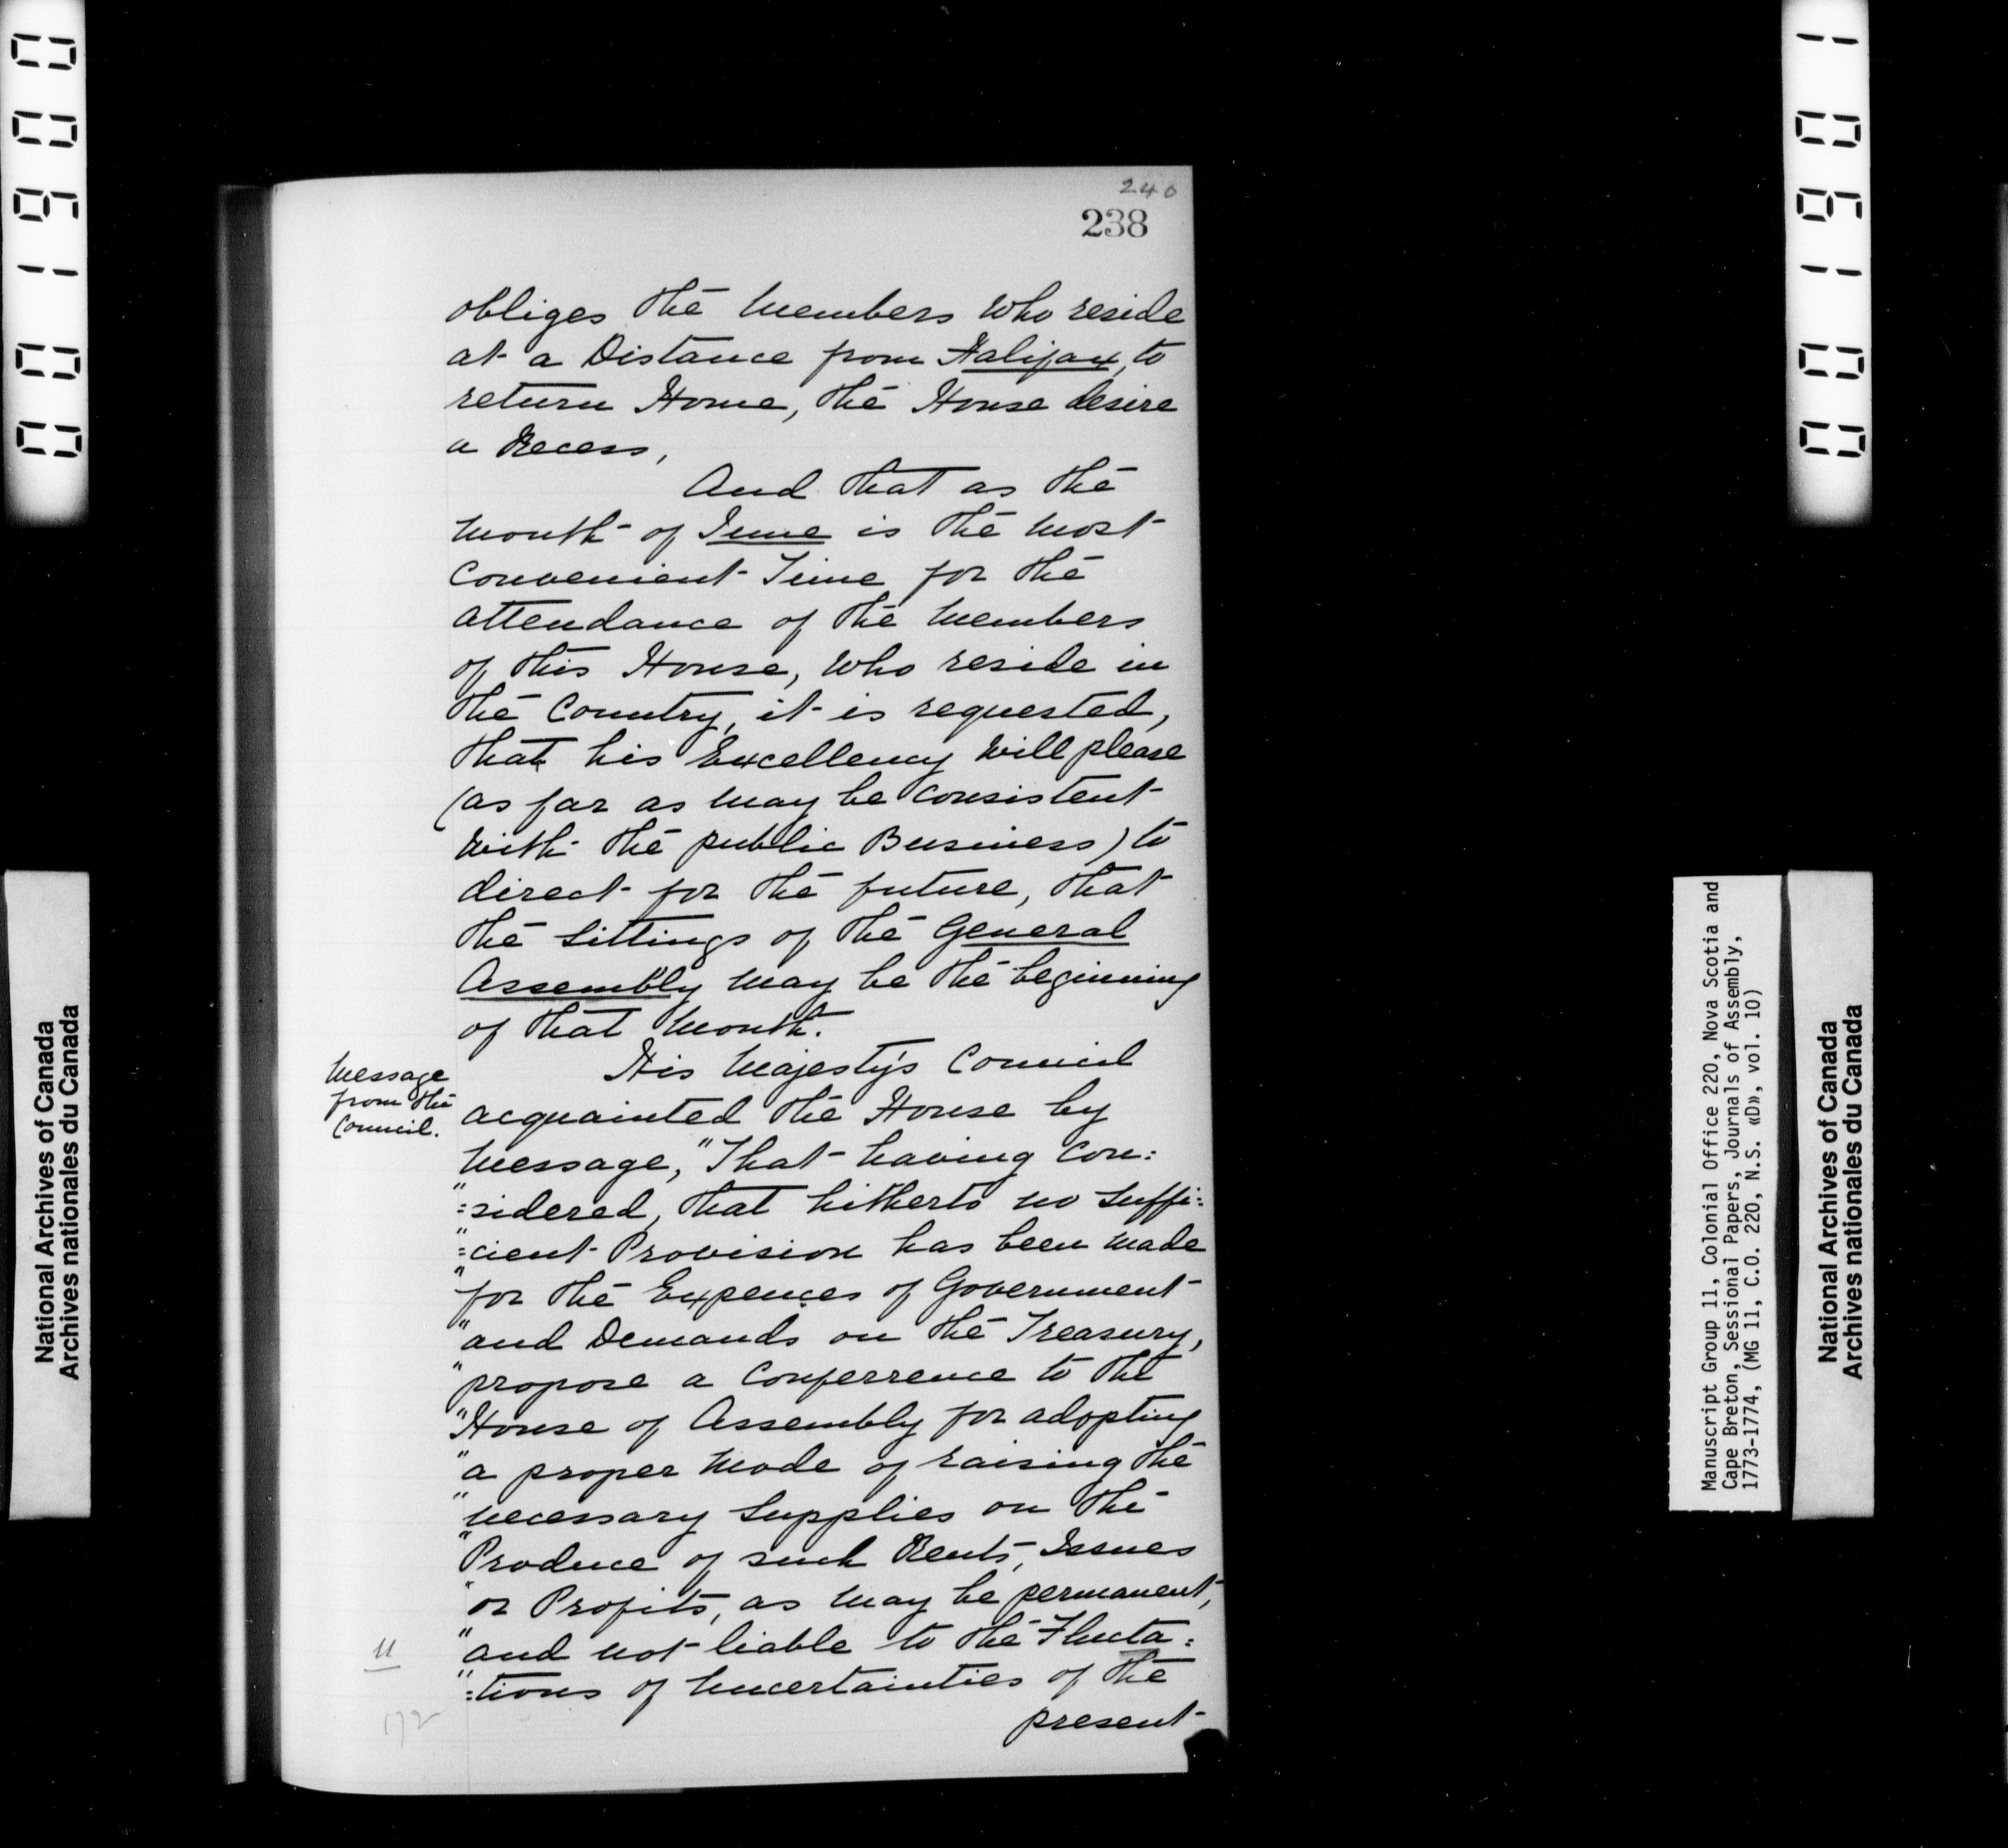 240
238
obliges the Members who reside
at a Distance from Halifax, to
return Home, the House desire
a Recess,
And that as the
Month of June is the most
Convenient Time for the
attendance of the Members
of this House, who reside in
the Country, it is requested,
that his Excellency will please
(as far as may be Consistent
with the public Business) to
direct for the future, that
the Sittings of the General
Assembly may be the beginning
of that Month.
Message
from the
Council.
His Majesty's Council
acquainted the House by
Message, "That having Con:
"=sidered, that hitherto no Suffi:
"=cient Provision has been made
"for the Expences of Government
"and Demands on the Treasury,
"propose a Conferrence to the
"House of Assembly for adopting
"a proper Mode of raising the
"necessary Supplies on the
"Produce of such Rents, Issues
"or Profits, as may be permanent,
"and not liable to the Flucta:
"=tions of Uncertainties of the
present
11
172
National Archives of Canada
Archives nationales du Canada
Manuscript Group 11, Colonial Office 220, Nova Scotia and
Cape Breton, Sessional Papers, Journals of Assembly,
1773-1774, (MG 11, C.O. 220, N.S. «D», vol. 10)
National Archives of Canada
Archives nationales du Canada